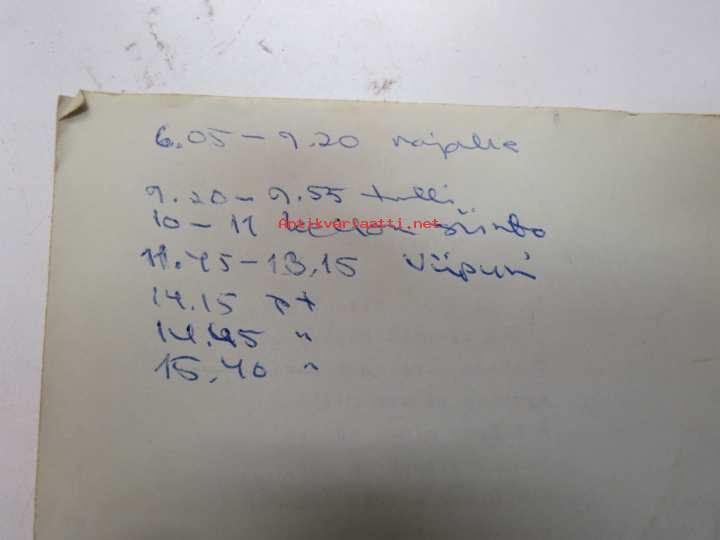 6.05 – 9.20 rajalle
9.20 – 9.55 tulli
10 – 11
Antikvariaatti.net
11.45 – 13.15 Viipuri
14.15 pt
14.45 "
15.40 "